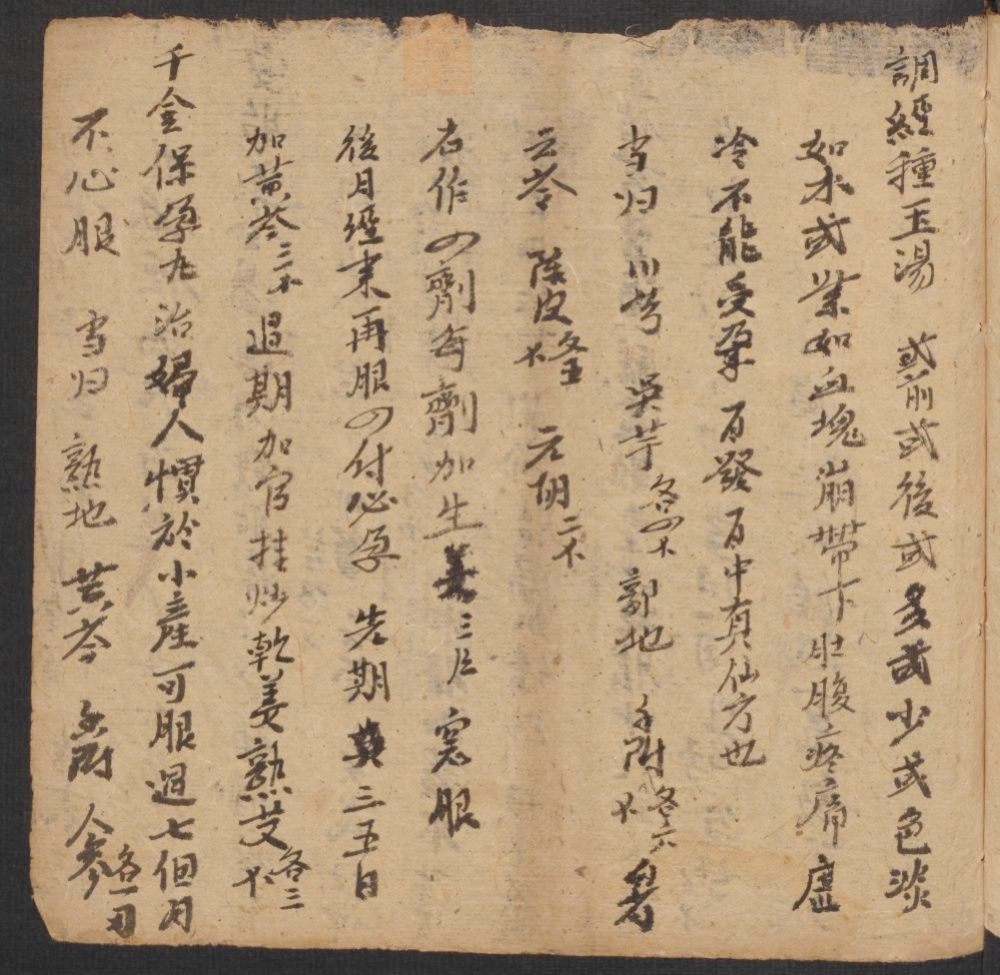 調經種玉湯 或前或後或多或少或色淡
如水或紫如血塊崩帶下肚腹疼痛虛
冷不能受孕百發百中真仙方也
当归 川芎 吳芋各四不 郭地 香附各六不
云苓 陈皮各不 元胡二不
右作四劑每劑加生姜三片 窓服
後月經来再服四付必孕 先期 三五日
加黄芩三不 過期加官桂炒乾姜熟艾各三不
千金保孕丸治婦人慣於小産可服過七個月
不心服 当归 熟地 黄芩 香附 人參各一